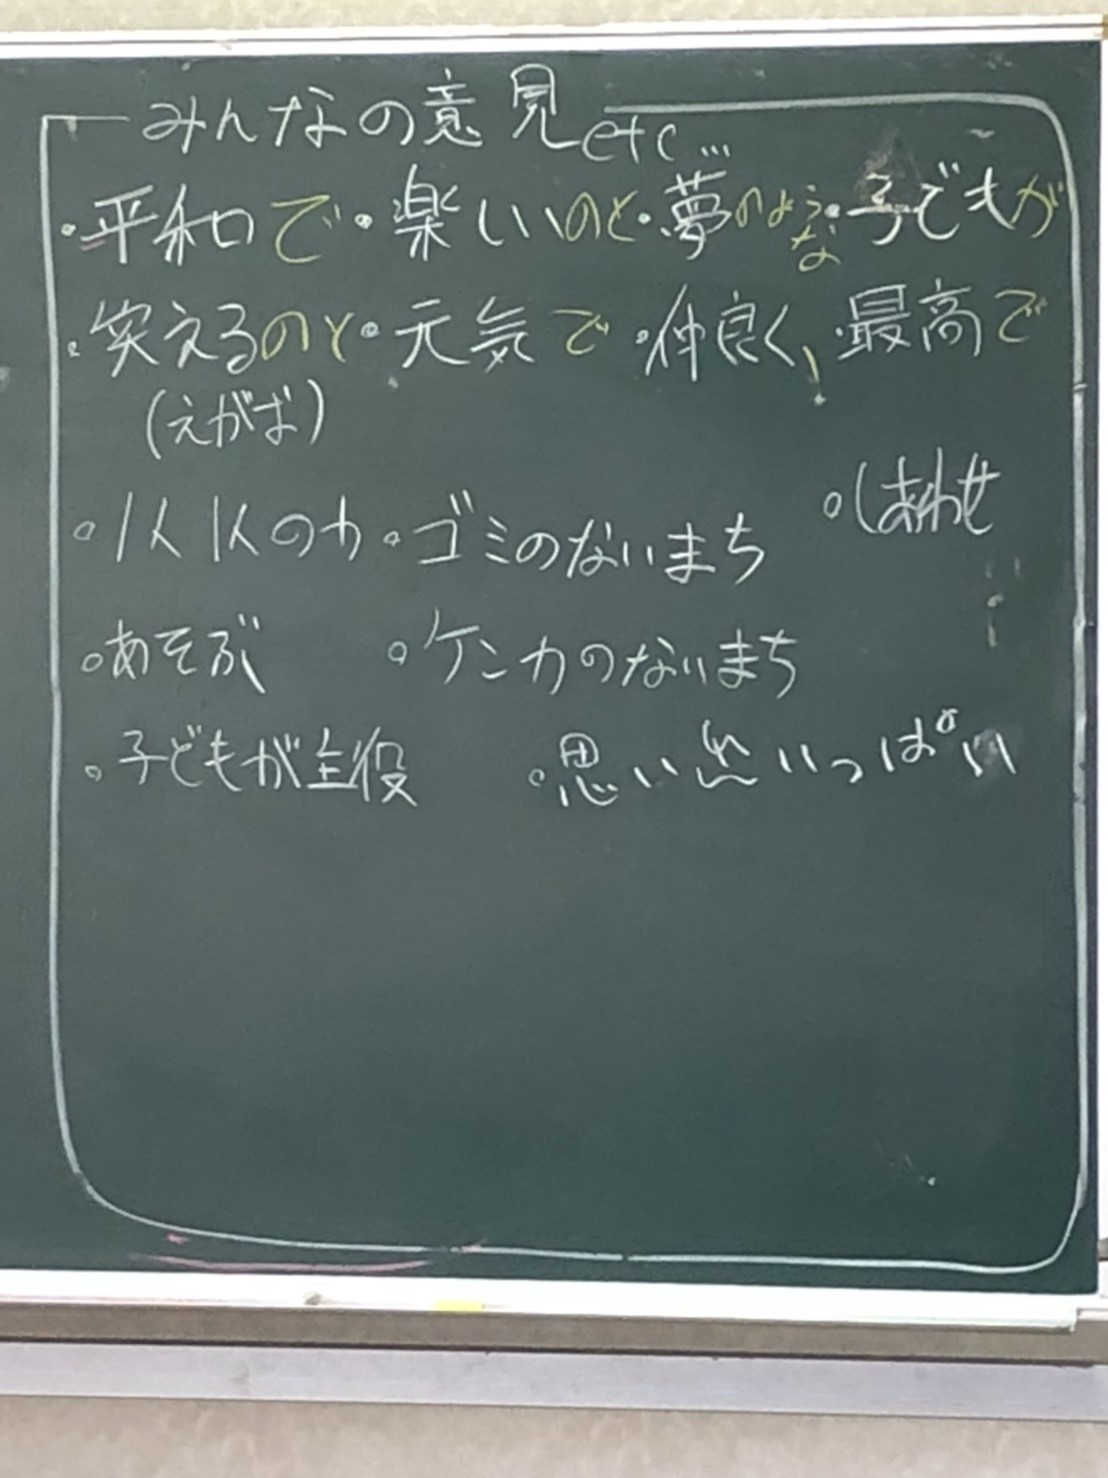 みんなの意見etc...
・平和で・楽しいのと・夢のような・子どもが
・笑えるのと・元気で・仲良く、!・最高で
(えがお)
・1人1人のカ・ゴミのないまち
・しあわせ
・あそぶ ・ケンカのないまち
・子どもが主役 ・思い出いっぱい